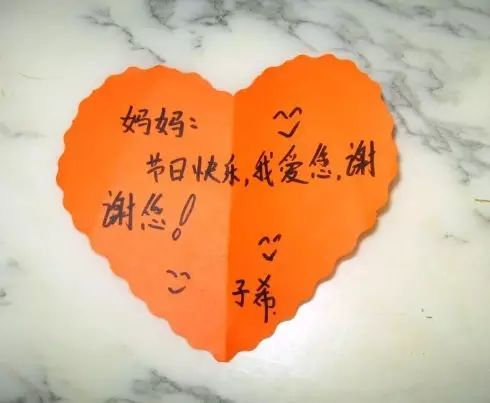 妈妈：
节日快乐,我爱您,谢
谢您！
子希